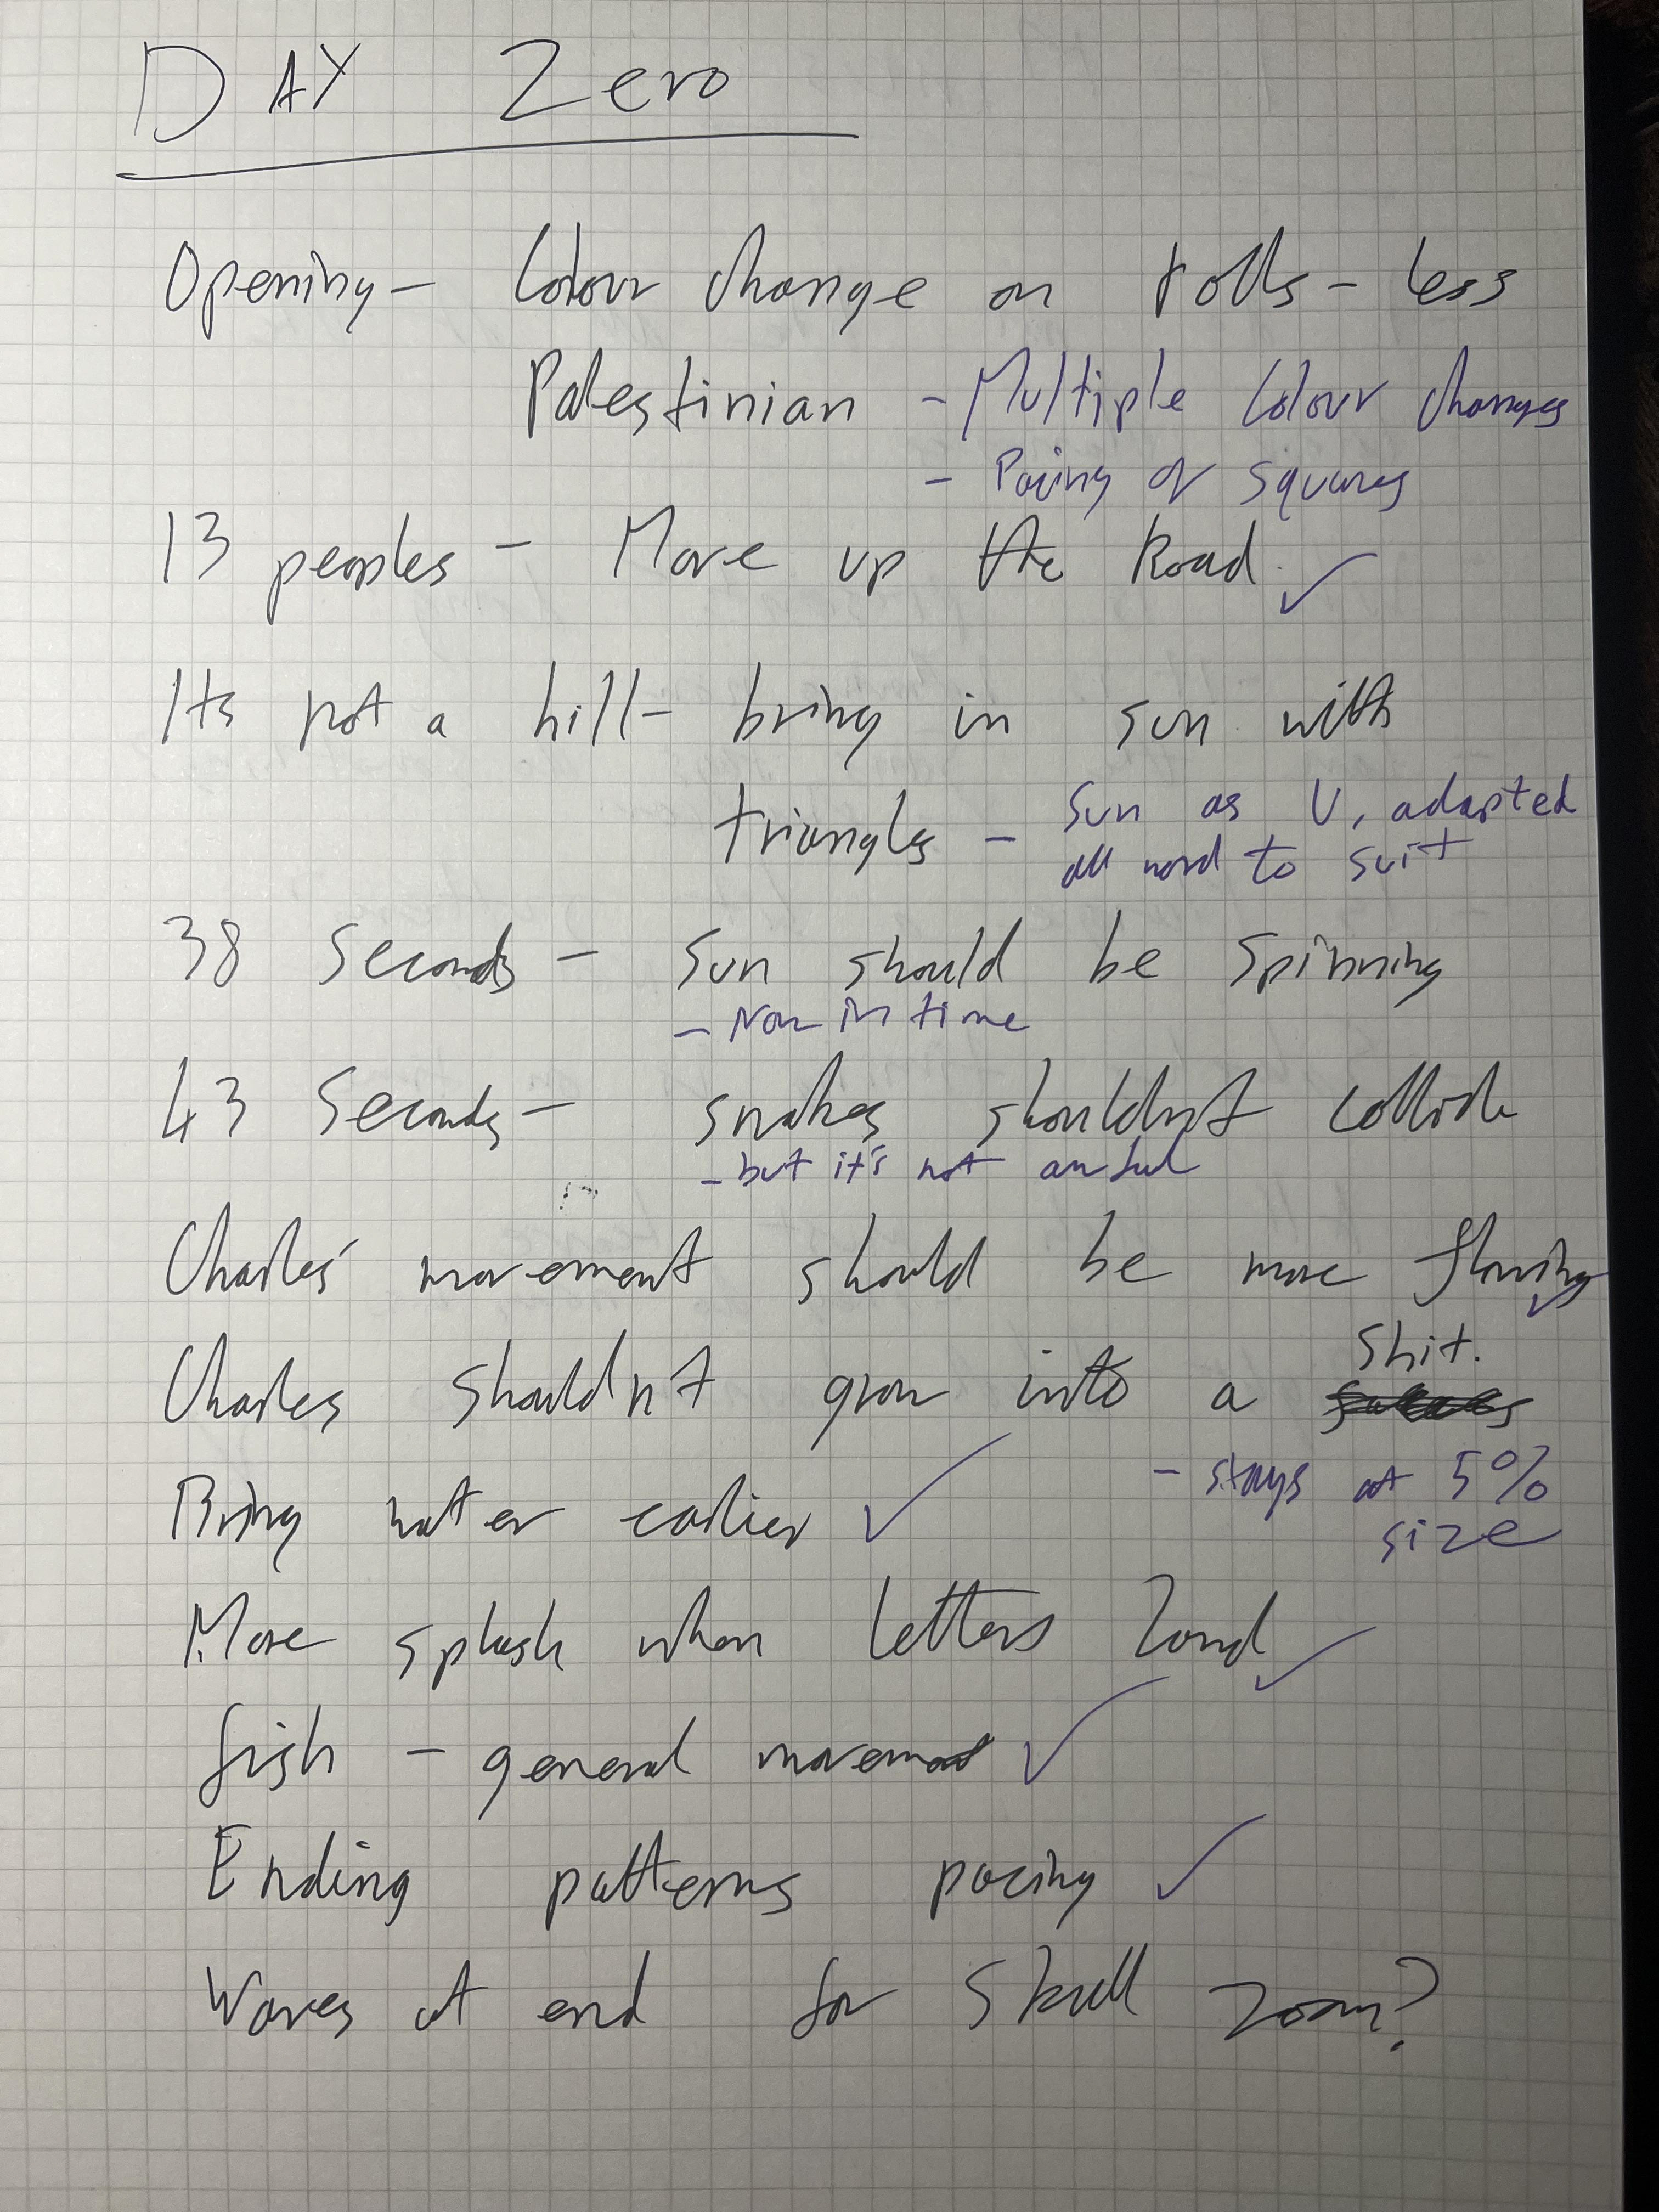 DAY Zero
Opening - Colour change on rolls - less
Palestinian - Multiple colour changes
- Pacing of squares
13 peoples - Move up the Road ✓
Its not a hill - bring in sun with
triangles - Sun as U, adapted
all word to suit
38 Seconds - Sun should be spinning
- Now in time
43 Seconds - snakes shouldn't collide
- but it's not awful
Charles' movement should be more flowing ✓
Shit.
Charles shouldn't grow into a
Bring water earlier ✓ - stays at 5%
size
More splash when letters land ✓
fish - general movement ✓
Ending patterns pacing ✓
Waves at end for Skull zoom?